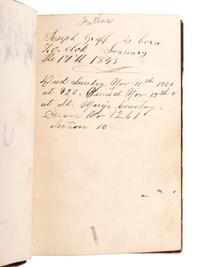 Father
Joseph Graff is born
7 o clok January
the 17th 1843
Died Sunday Nov 11th 1900
at 820. Buried Nov 13th
at St. Marys Cemetery.
Grave No 1261
Section 10